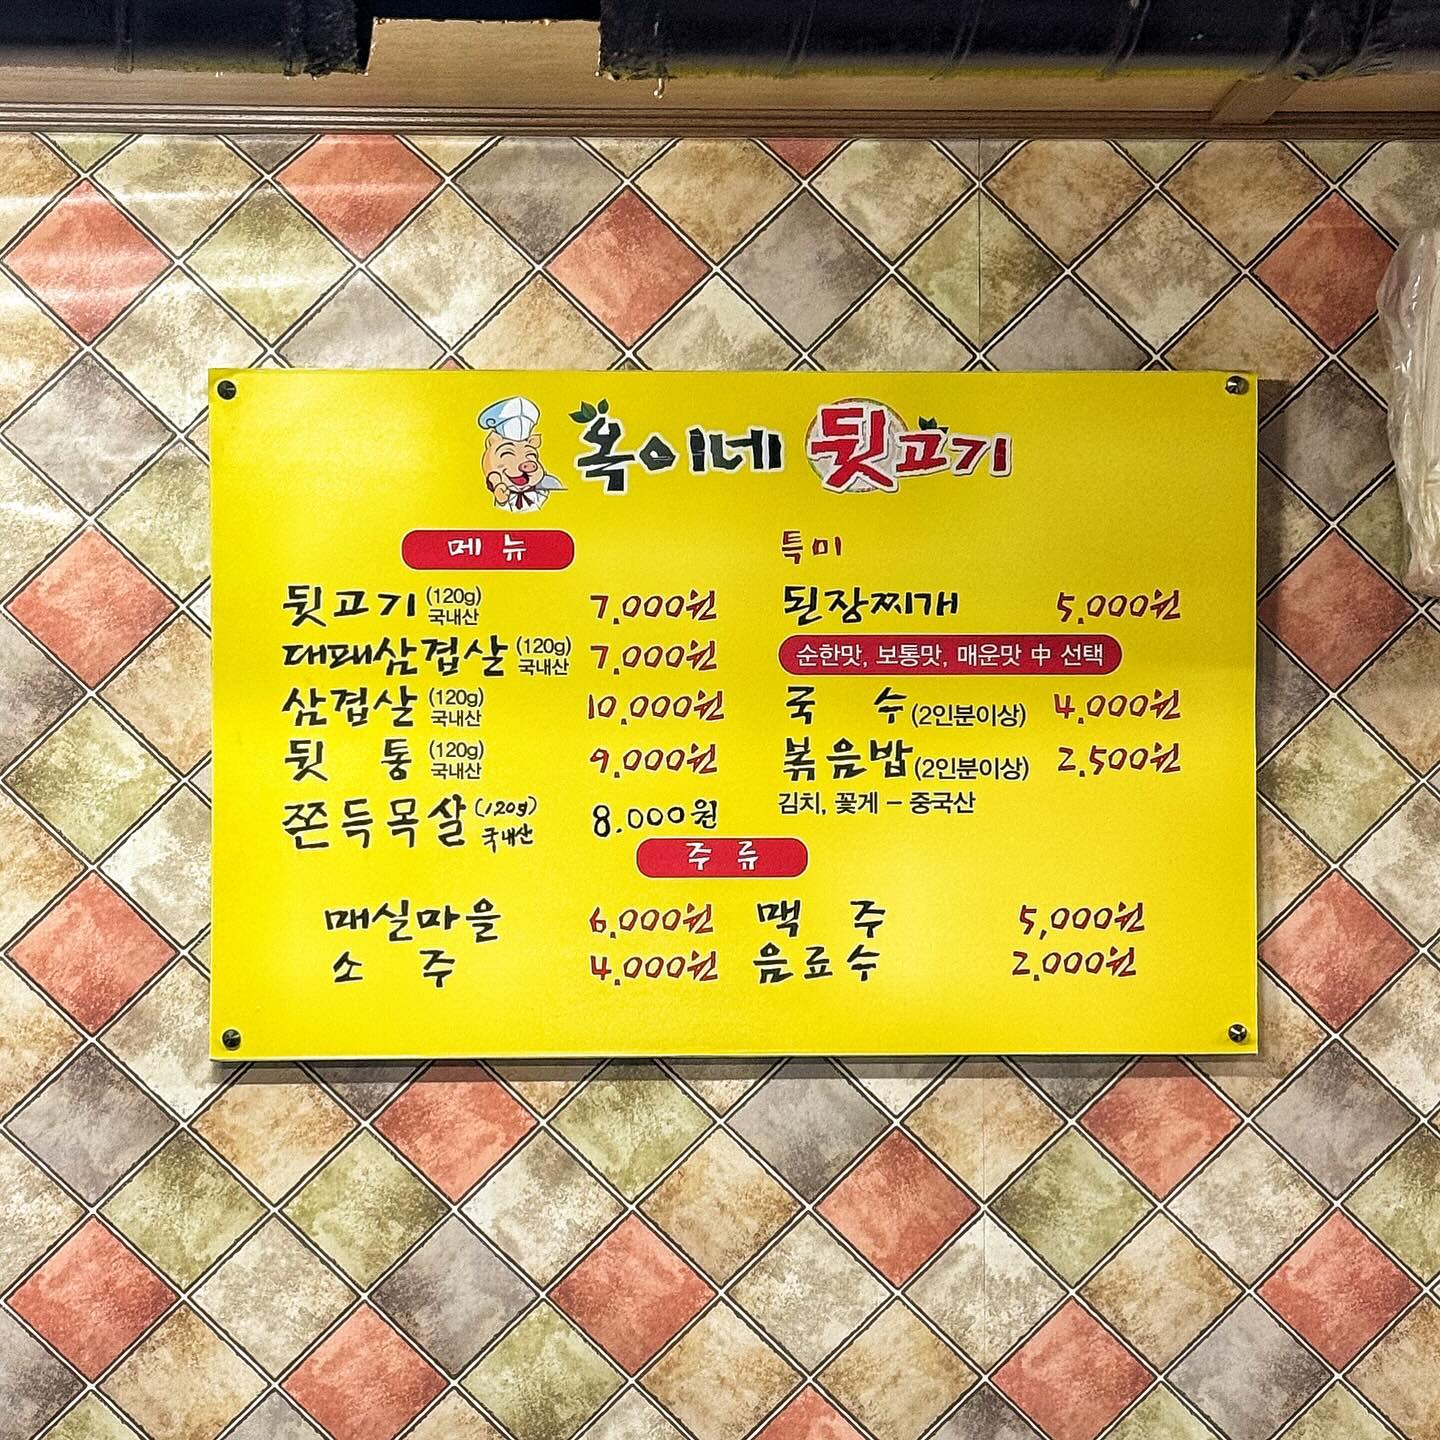 옥이네 뒷고기
메뉴
뒷고기 (120g) 국내산 7,000원
대패삼겹살 (120g) 국내산 7,000원
삼겹살 (120g) 국내산 10,000원
뒷통 (120g) 국내산 9,000원
쫀득목살 (120g) 국내산 8.000원
특미
된장찌개 5,000원
순한맛, 보통맛, 매운맛 中 선택
국수 (2인분이상) 4,000원
볶음밥 (2인분이상) 2,500원
김치, 꽃게 – 중국산
주류
매실마을 6,000원 맥주 5,000원
소주 4,000원 음료수 2,000원